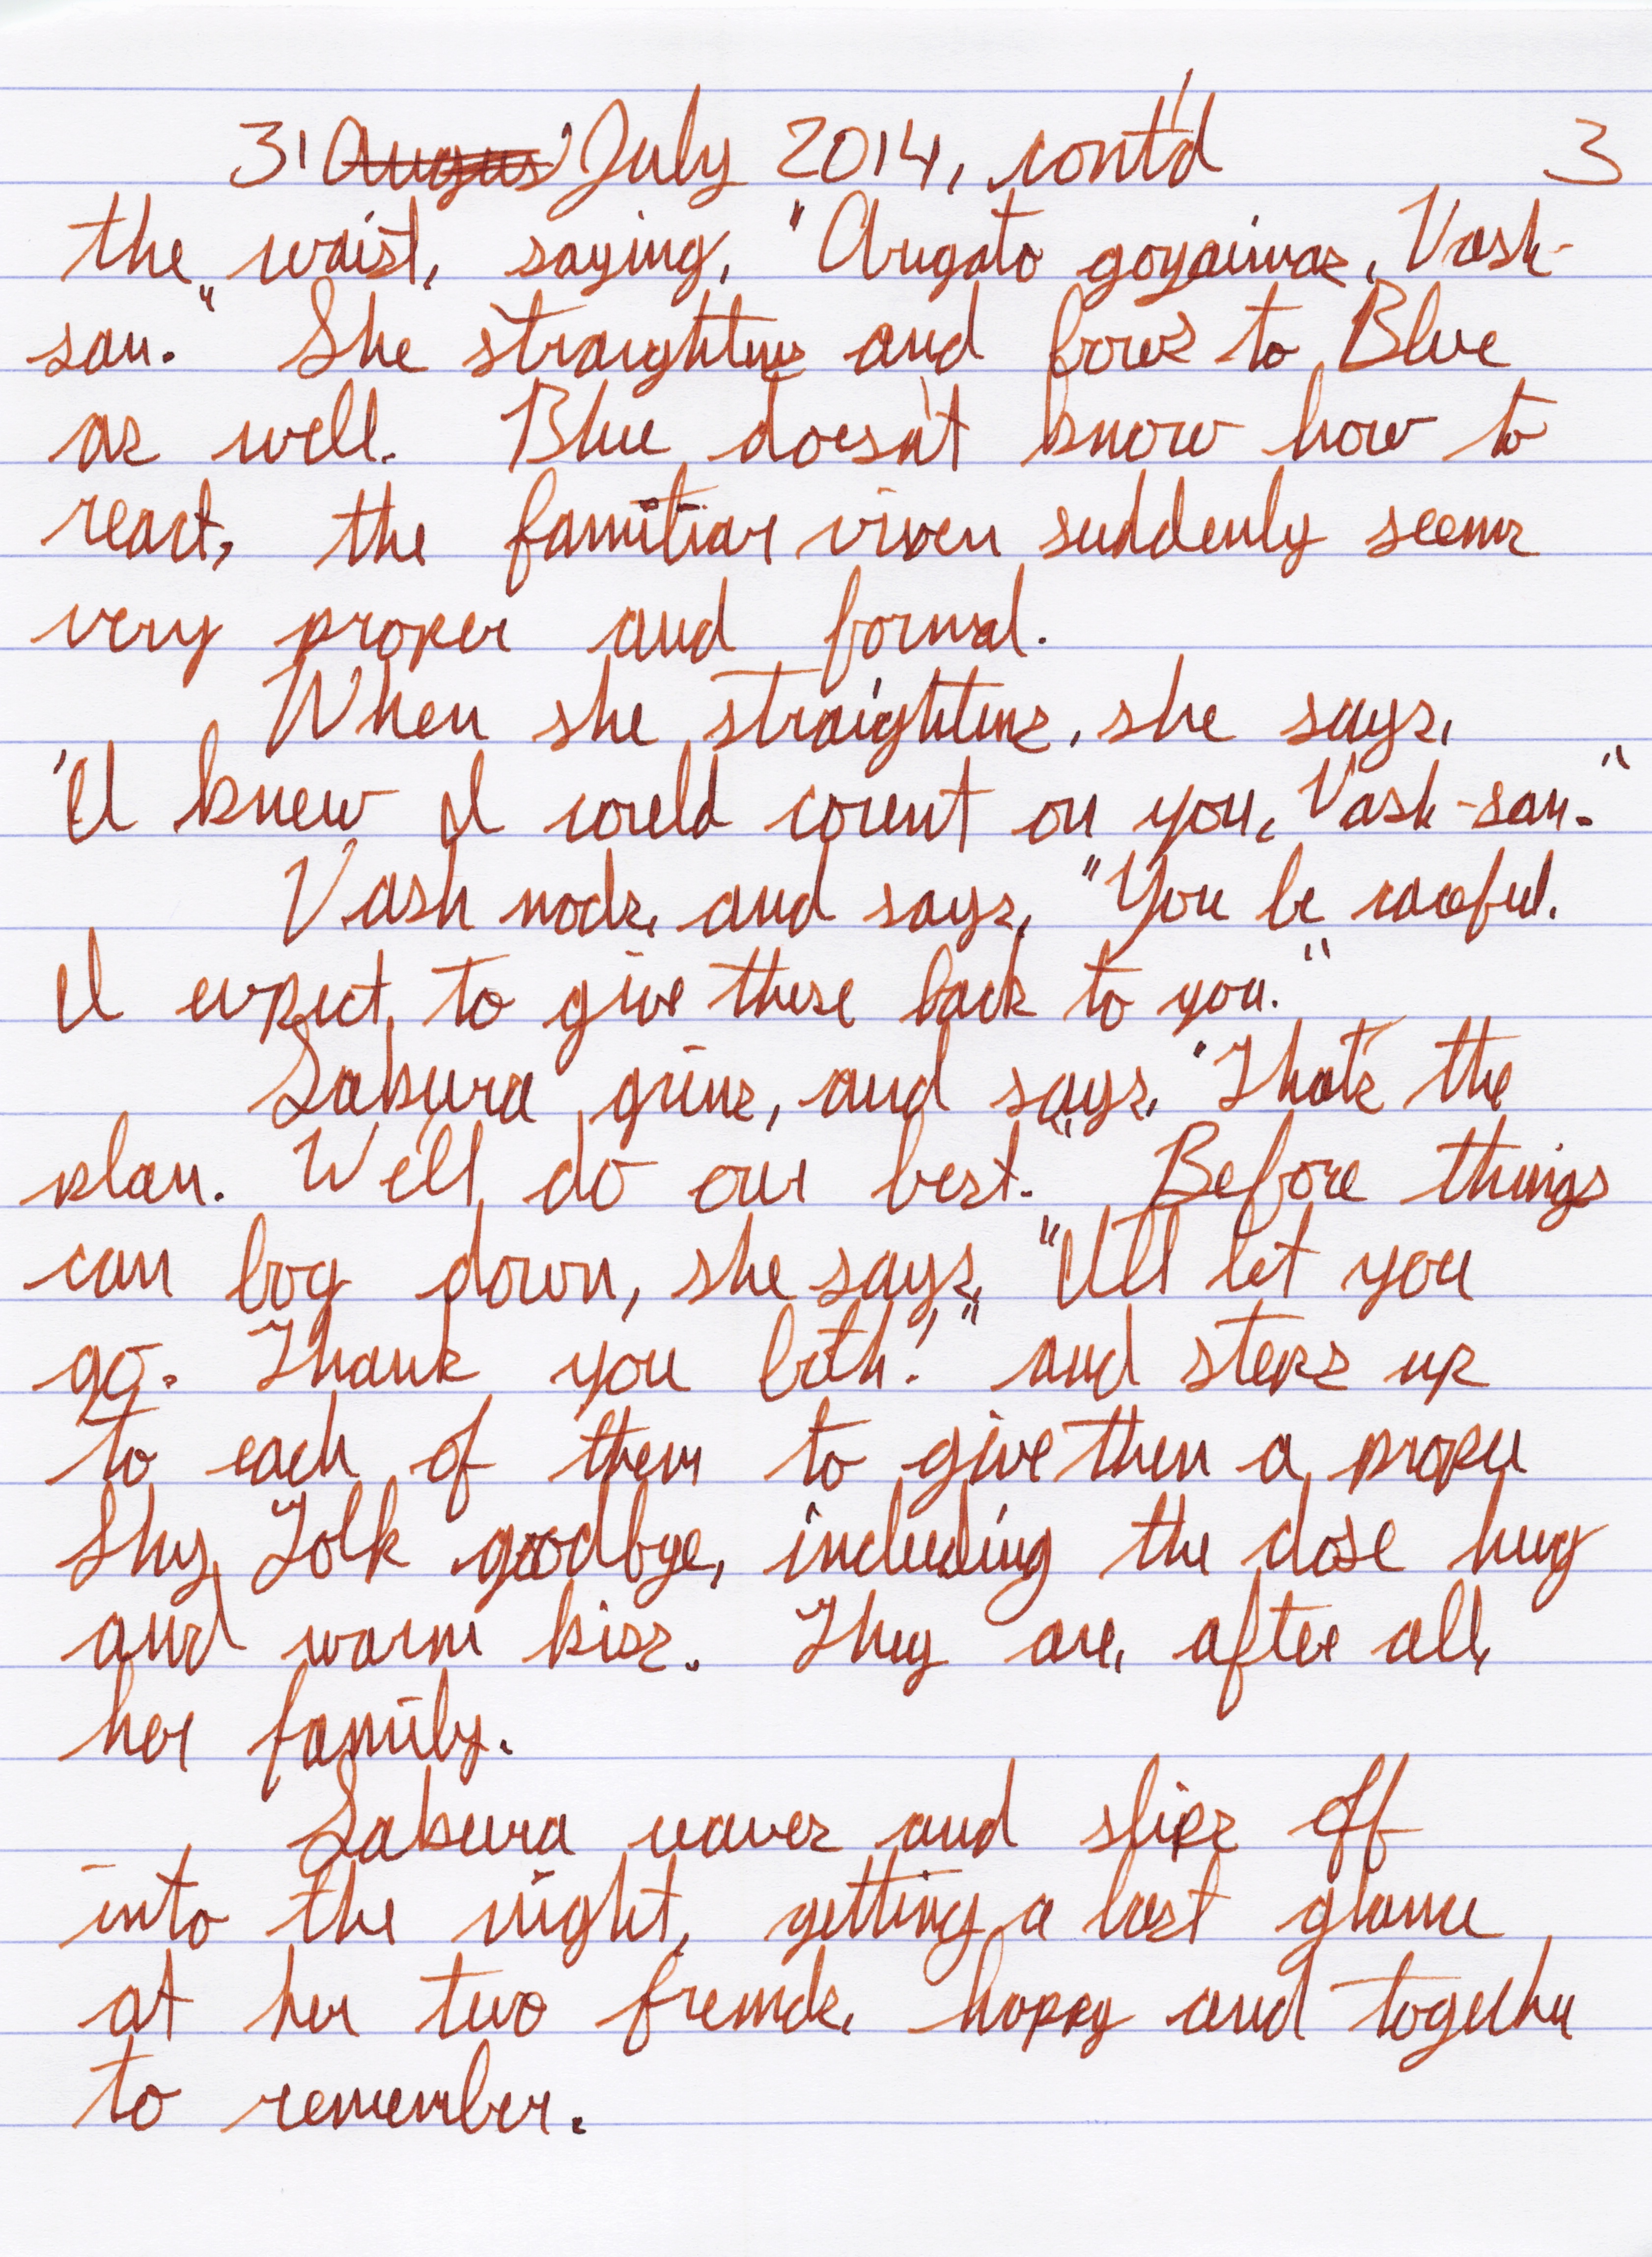 31 Augus July 2014, cont'd 3
the waist, saying, "Arigato gozaimas, Vash-
san." She straightens and bows to Blue
as well. Blue doesn't know how to
react, the familiar vixen suddenly seems
very proper and formal.
When she straightens, she says,
"I knew I could count on you, Vash-san."
Vash nods, and says, "You be careful.
I expect to give these back to you."
Sakura grins, and says, "That's the
plan. We'll do our best." Before things
can bog down, she says, "I'll let you
go. Thank you both!" and steps up
to each of them to give them a proper
Shy Folk goodbye, including the close hug
and warm kiss. They are, after all,
her family.
Sakura waves and slips off
into the night, getting a last glance
at her two friends, happy and together
to remember.